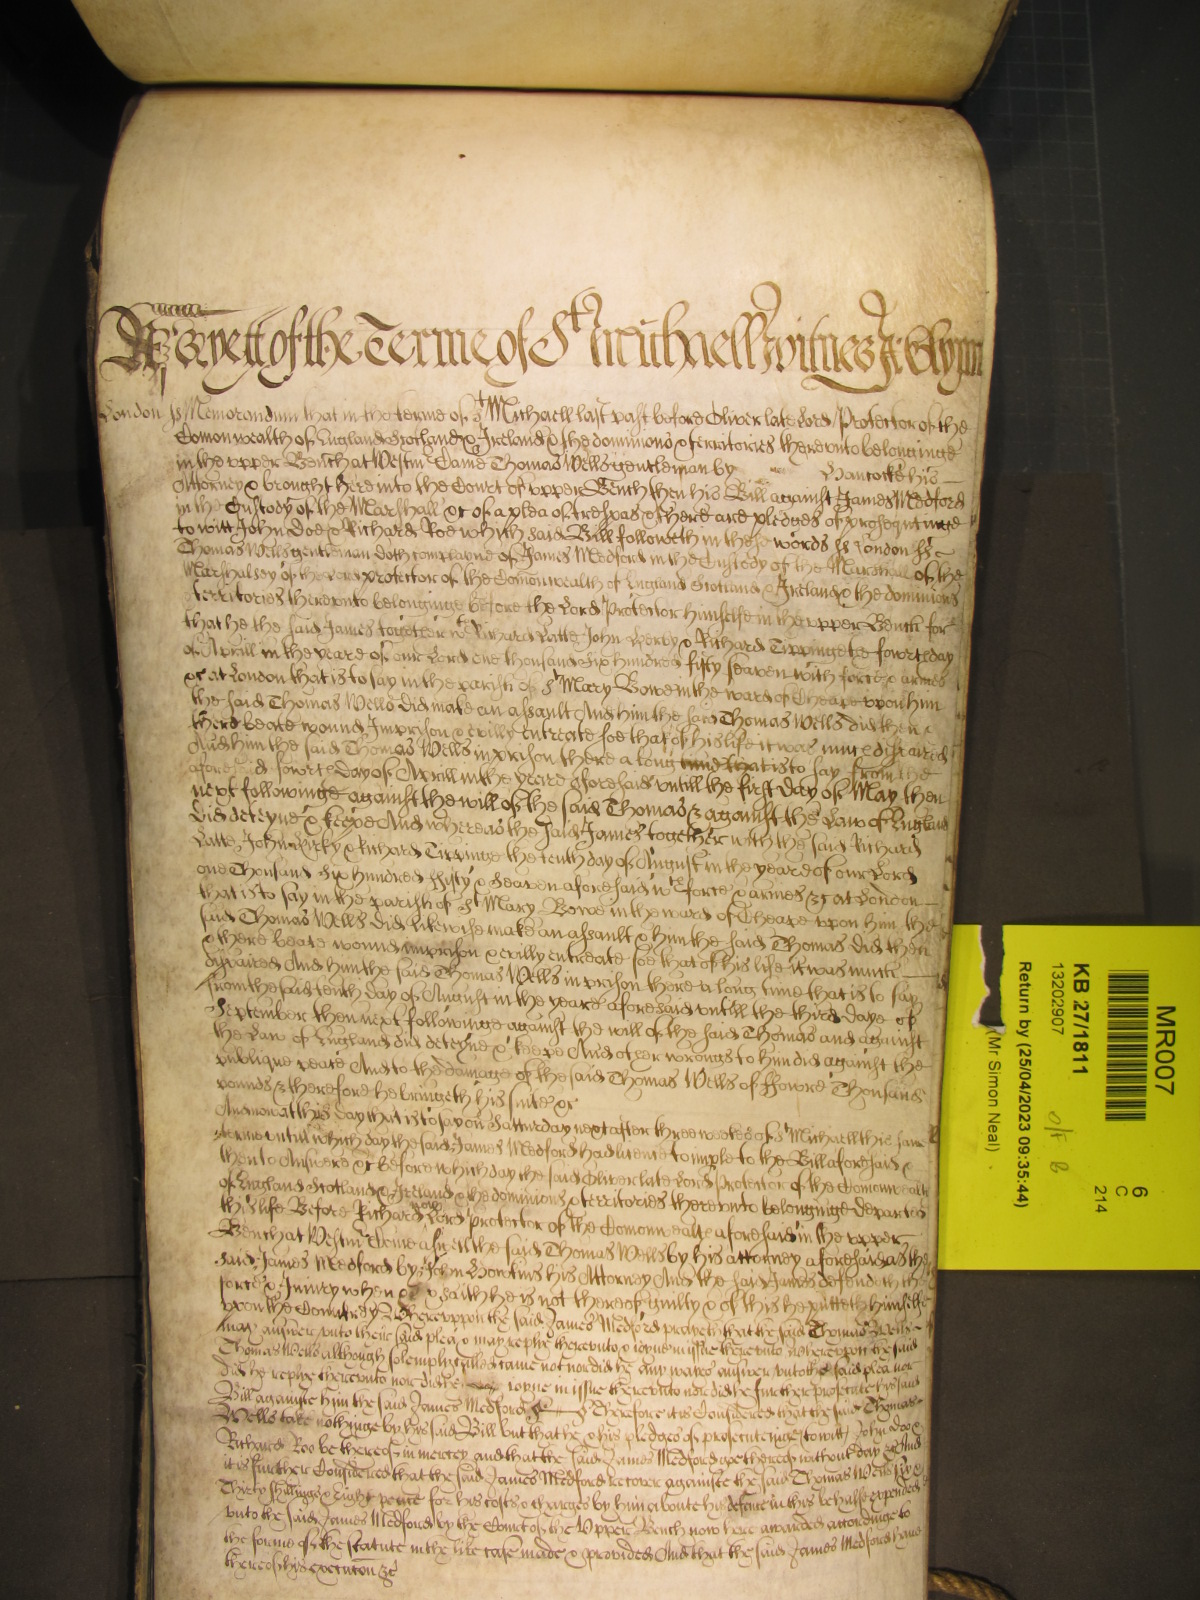 As yett of the Terme of St Michaell witnes J: Glynn
London ss Memorandum that in the terme of St Michaell last past before Oliver late Lord Protector of the
Comonwealth of England Scotland & Ireland & the dominions & territories thereunto belonginge
in the upper Bench at Westmr Came Thomas Wells gentleman by Hancocke his
Attorney & brought here into the Court of upper Bench then his Bill against James Medford
in the Custody of the Marshall &c of a plea of trespas & there are pledges of prosequtinge
to witt John Doe & Richard Roe which said Bill followeth in these words ss London ss
Thomas Wells gentleman doth complayne of James Medford in the Custody of the Marshall of the
Marshalsey of the Lord Protector of the Comonwealth of England Scotland & Ireland & the dominions
territories thereunto belonginge before the Lord Protector himselfe in the upper Bench for
that he the said James together wth Richard Latte John & Richard Tippinge the day
of Aprill in the yeare of our Lord one thousand six hundred fifty seaven with force & armes
&c at London that is to say in the parish of St Mary Bowe in the ward of Cheape upon him
the said Thomas Wells did make an assault And him the said Thomas Wells did then &
there beate wound Imprison & evilly entreate soe that of his life it was much dispaired
And him the said Thomas Wells in prison there a long time that is to say from the
aforesaid day of Aprill in the yeare aforesaid untill the first day of May then
next followinge against the will of the said Thomas & against the Law of England
did deteyne & keepe And whereas the said James together with the said Richard
Latte John & Richard Tippinge the tenth day of August in the yeare of our Lord
one Thousand six hundred fifty & seaven aforesaid wth force & armes &c at London
that is to say in the parish of St Mary Bowe in the ward of Cheape upon him the
said Thomas Wells did likewise make an assault & him the said Thomas did then
& there beate wound imprison & evilly entreate soe that of his life it was much
dispaired And him the said Thomas Wells in prison there a long time that is to say
from the said tenth day of August in the yeare aforesaid untill the third daye of
September then next followinge against the will of the said Thomas and against
the Law of England did deteyne & keepe And other wrongs to him did against the
publique peace And to the damage of the said Thomas Wells of Thousand
pounds & therefore he bringeth his suite &c
And now at this day that is to say on Saturday next after three weekes of St Michaell this same
terme untill which day the said James Medford had licence to imple to the Bill aforesaid &
then to Answere &c Before which day the said Oliver late Lord Protector of the Comonwealth
of England Scotland & Ireland & the dominions & territories thereunto belonginge departed
this life Before Richard now Lord Protector of the Comonwealth aforesaid in the upper
Bench at Westmr Come aswell the said Thomas Wells by his attorney aforesaid as the
said James Medford by John his Attorney And the said James defendeth the
force & Iniury when &c & saith he is not thereof guilty & of this he putteth himselfe
upon the Countrey Whereuppon the said James Medford prayeth that the said Thomas Wells
may answer unto their said plea & may replye thereunto & ioyne in issue thereunto whereupon the said
Thomas Wells although solemply called came not nor did he any wayes answer unto the said plea nor
did he replye thereunto nor did he ioyne in issue thereunto nor did he further prosecute his said
Bill againste him the said James Medford &c Therefore it is Considered that the said Thomas
Wells take nothinge by his said Bill but that he & his pledges of prosecutinge to witt John Doe &
Richard Roo be thereof in mercey and that the said James Medford goe thereof without day &c And
it is further Considered that the said James Medford recover againste the said Thomas Wells
Thirty shillings & eight pence for his costs & charges by him aboute his defence in this behalfe expended
unto the said James Medford by the Court of the Upper Bench now here awarded accordinge to
the forme of the statute in the like case made & provided And that the said James Medford have
thereof his execution &c
MR007
6
C
214
KB 27/1811
13202907
Return by (25/04/2023 09:35:44)
(Mr Simon Neal)